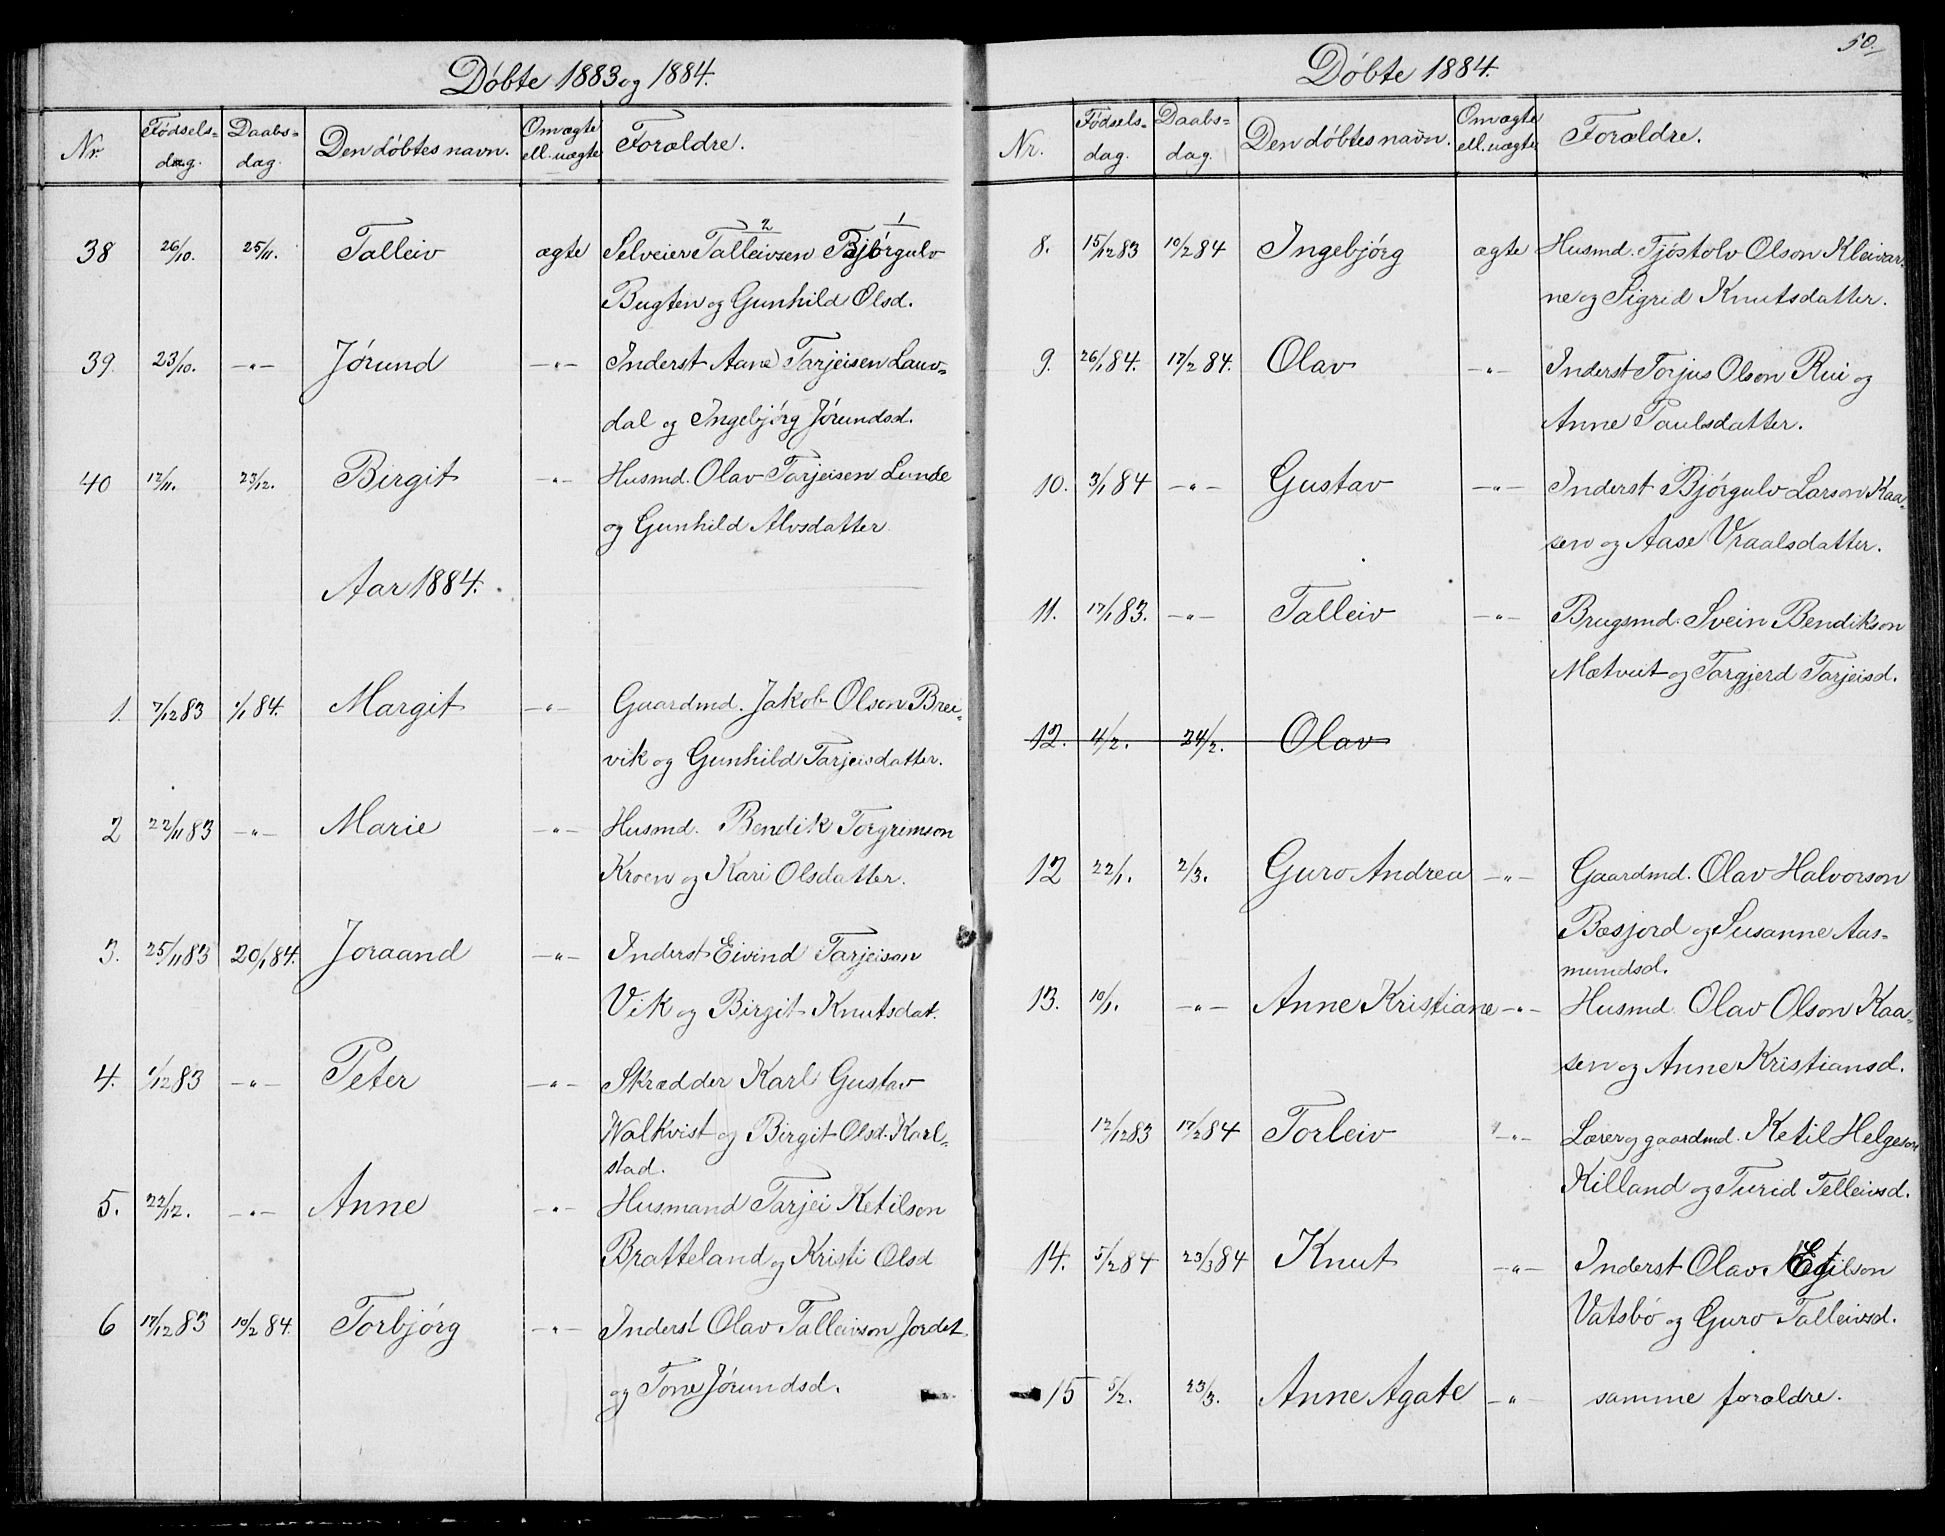 Døbte 1883 og 1884.
Nr. Fødsels= dag. Daabs= dag. Den døbtes navn. Om ægte ell. uægte Forældre.
38 26/10. 25/11. Talleiv ægte Selveier Talleivsen 2 Bjørgulv 1
Bugten og Gunhild Olsd.
39. 23/10. -"- Jørund -"- Inderst Aane Tarjeisen Lauv=
dal og Ingebjørg Jørundsd.
40 12/11. 23/12. Birgit -"- Husmd. Olav Tarjeisen Lunde
og Gunhild Alvsdatter
Aar 1884.
1. 7/12 83 1/1 84. Margit -"- Gaardmd. Jakob Olson Brei=
vik og Gunhild Tarjeisdatter.
2 22/11 83 -"- Marie -"- Husmd. Bendik Torgrimson
Kroen og Kari Olsdatter.
3. 25/11 83 20/1 84. Joraand -"- Inderst Eivind Tarjeison
Vik og Birgit Knutsdat.
4. 1/12 83 -"- Peter -"- Skrædder Karl Gustav
Walkvist og Birgit Olsd. Karl=
stad.
5. 22/12. -"- Anne -"- Husmand Tarjei Ketilson
Bratteland og Kristi Olsd
6 17/12 83 10/2 84. Torbjørg -"- Inderst Olav Talleivson Jordet
og Tone Jørundsd.
50.
Døbte 1884.
Nr. Fødsels= dag. Daabs= dag. Den døbtes navn. Om ægte ell. uægte Forældre.
8. 15/12 83 10/2 84 Ingebjørg ægte Husmd. Tjøstolv Olson Kleivar=
ne og Sigrid Knutsdatter.
9. 26/1 84. 17/2 84. Olav -"- Inderst Torjus Olson Rui og
Anne Paulsdatter.
10. 3/1 84 -"- Gustav -"- Inderst Bjørgulv Larson Kaa=
sen og Aase Vraalsdatter.
11. 17/1 83. -"- Talleiv -"- Brugsmd. Svein Bendikson
Mætveit og Torgjerd Tarjeisd.
12. 4/2. 24/2. Olav
12 22/1. 2/3. Guro Andrea -"- Gaardmd. Olav Halvorson
Bæsjord og Susanne Aas=
mundsd.
13. 10/1. -"- Anne Kristiane -"- Husmd. Olav Olson Kaa=
sen og Anne Kristiansd.
12/12 83 17/2 84 Torleiv -"- Lærer og gaardmd. Ketil Helgeson
Killand og Turid Telleivsd.
14. 5/2 84 23/3 84 Knut -"- Inderst Olav Egilson
Vatsbø og Guro Talleivsd.
15 5/2. 23/3. Anne Agate -"- samme forældre.